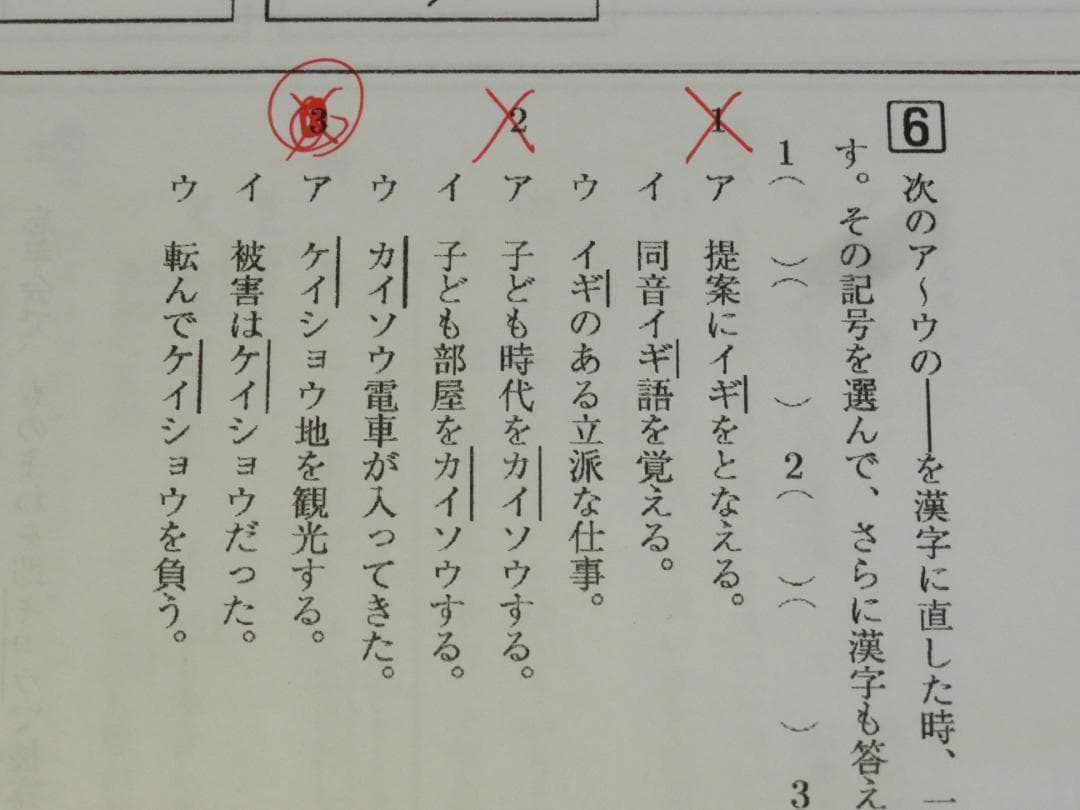 6 次のア〜ウの――を漢字に直した時、一
す。その記号を選んで、さらに漢字も答え
1（　）（　）2（　）（　）3
1 ア 提案にイギをとなえる。
イ 同音イギ語を覚える。
ウ イギのある立派な仕事。
2 ア 子ども時代をカイソウする。
イ 子ども部屋をカイソウする。
ウ カイソウ電車が入ってきた。
3 ア ケイショウ地を観光する。
イ 被害はケイショウだった。
ウ 転んでケイショウを負う。